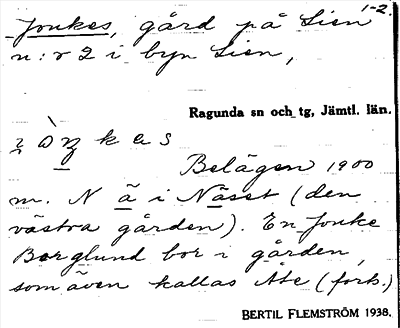 1-2.
Jonkes, gård på Lien
n:r 2 i byn Lien,
Ragunda sn och tg, Jämtl. län.
Belägen 1900
m. N ä i Näset (den
västra gården). En Jonke
Berglund bor i gården,
som även kallas Ate (forts.)
BERTIL FLEMSTRÖM 1938.